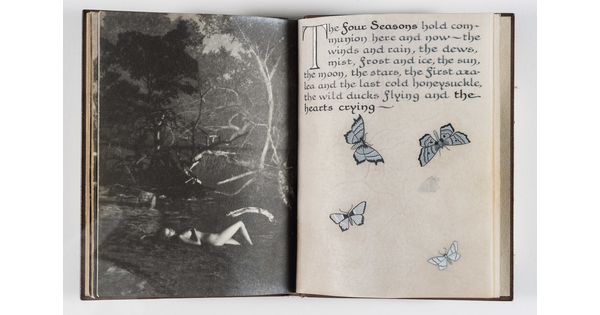 The Four Seasons hold com-
munion here and now ~ the
winds and rain, the dews,
mist, frost and ice, the sun,
the moon, the stars, the first aza-
lea and the last cold honeysuckle,
the wild ducks flying and the
hearts crying ~